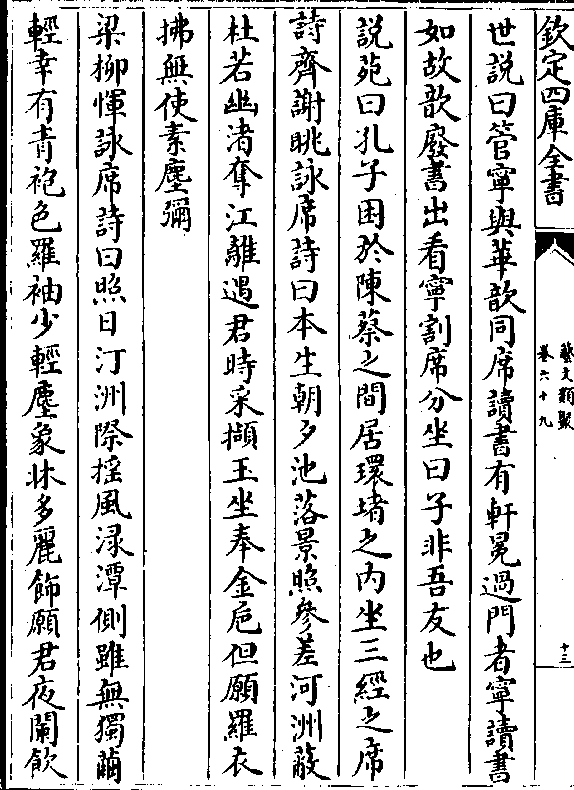 欽定四庫全書
藝文類聚
卷六十九
十三
世説曰管寧與華歆同席讀書有軒冕過門者寧讀書
如故歆廢書出看寧割席分坐曰子非吾友也
説苑曰孔子困於陳蔡之間居環堵之内坐三經之席
詩齊謝眺詠席詩曰本生朝夕池落景照參差河洲蔽
杜若幽渚奪江離遇君時采擷玉坐奉金卮但願羅衣
拂無使素塵彌
梁柳惲詠席詩曰照日汀洲際揺風渌潭側雖無獨繭
輕幸有青袍色羅袖少輕塵象牀多麗飾願君夜闌飲